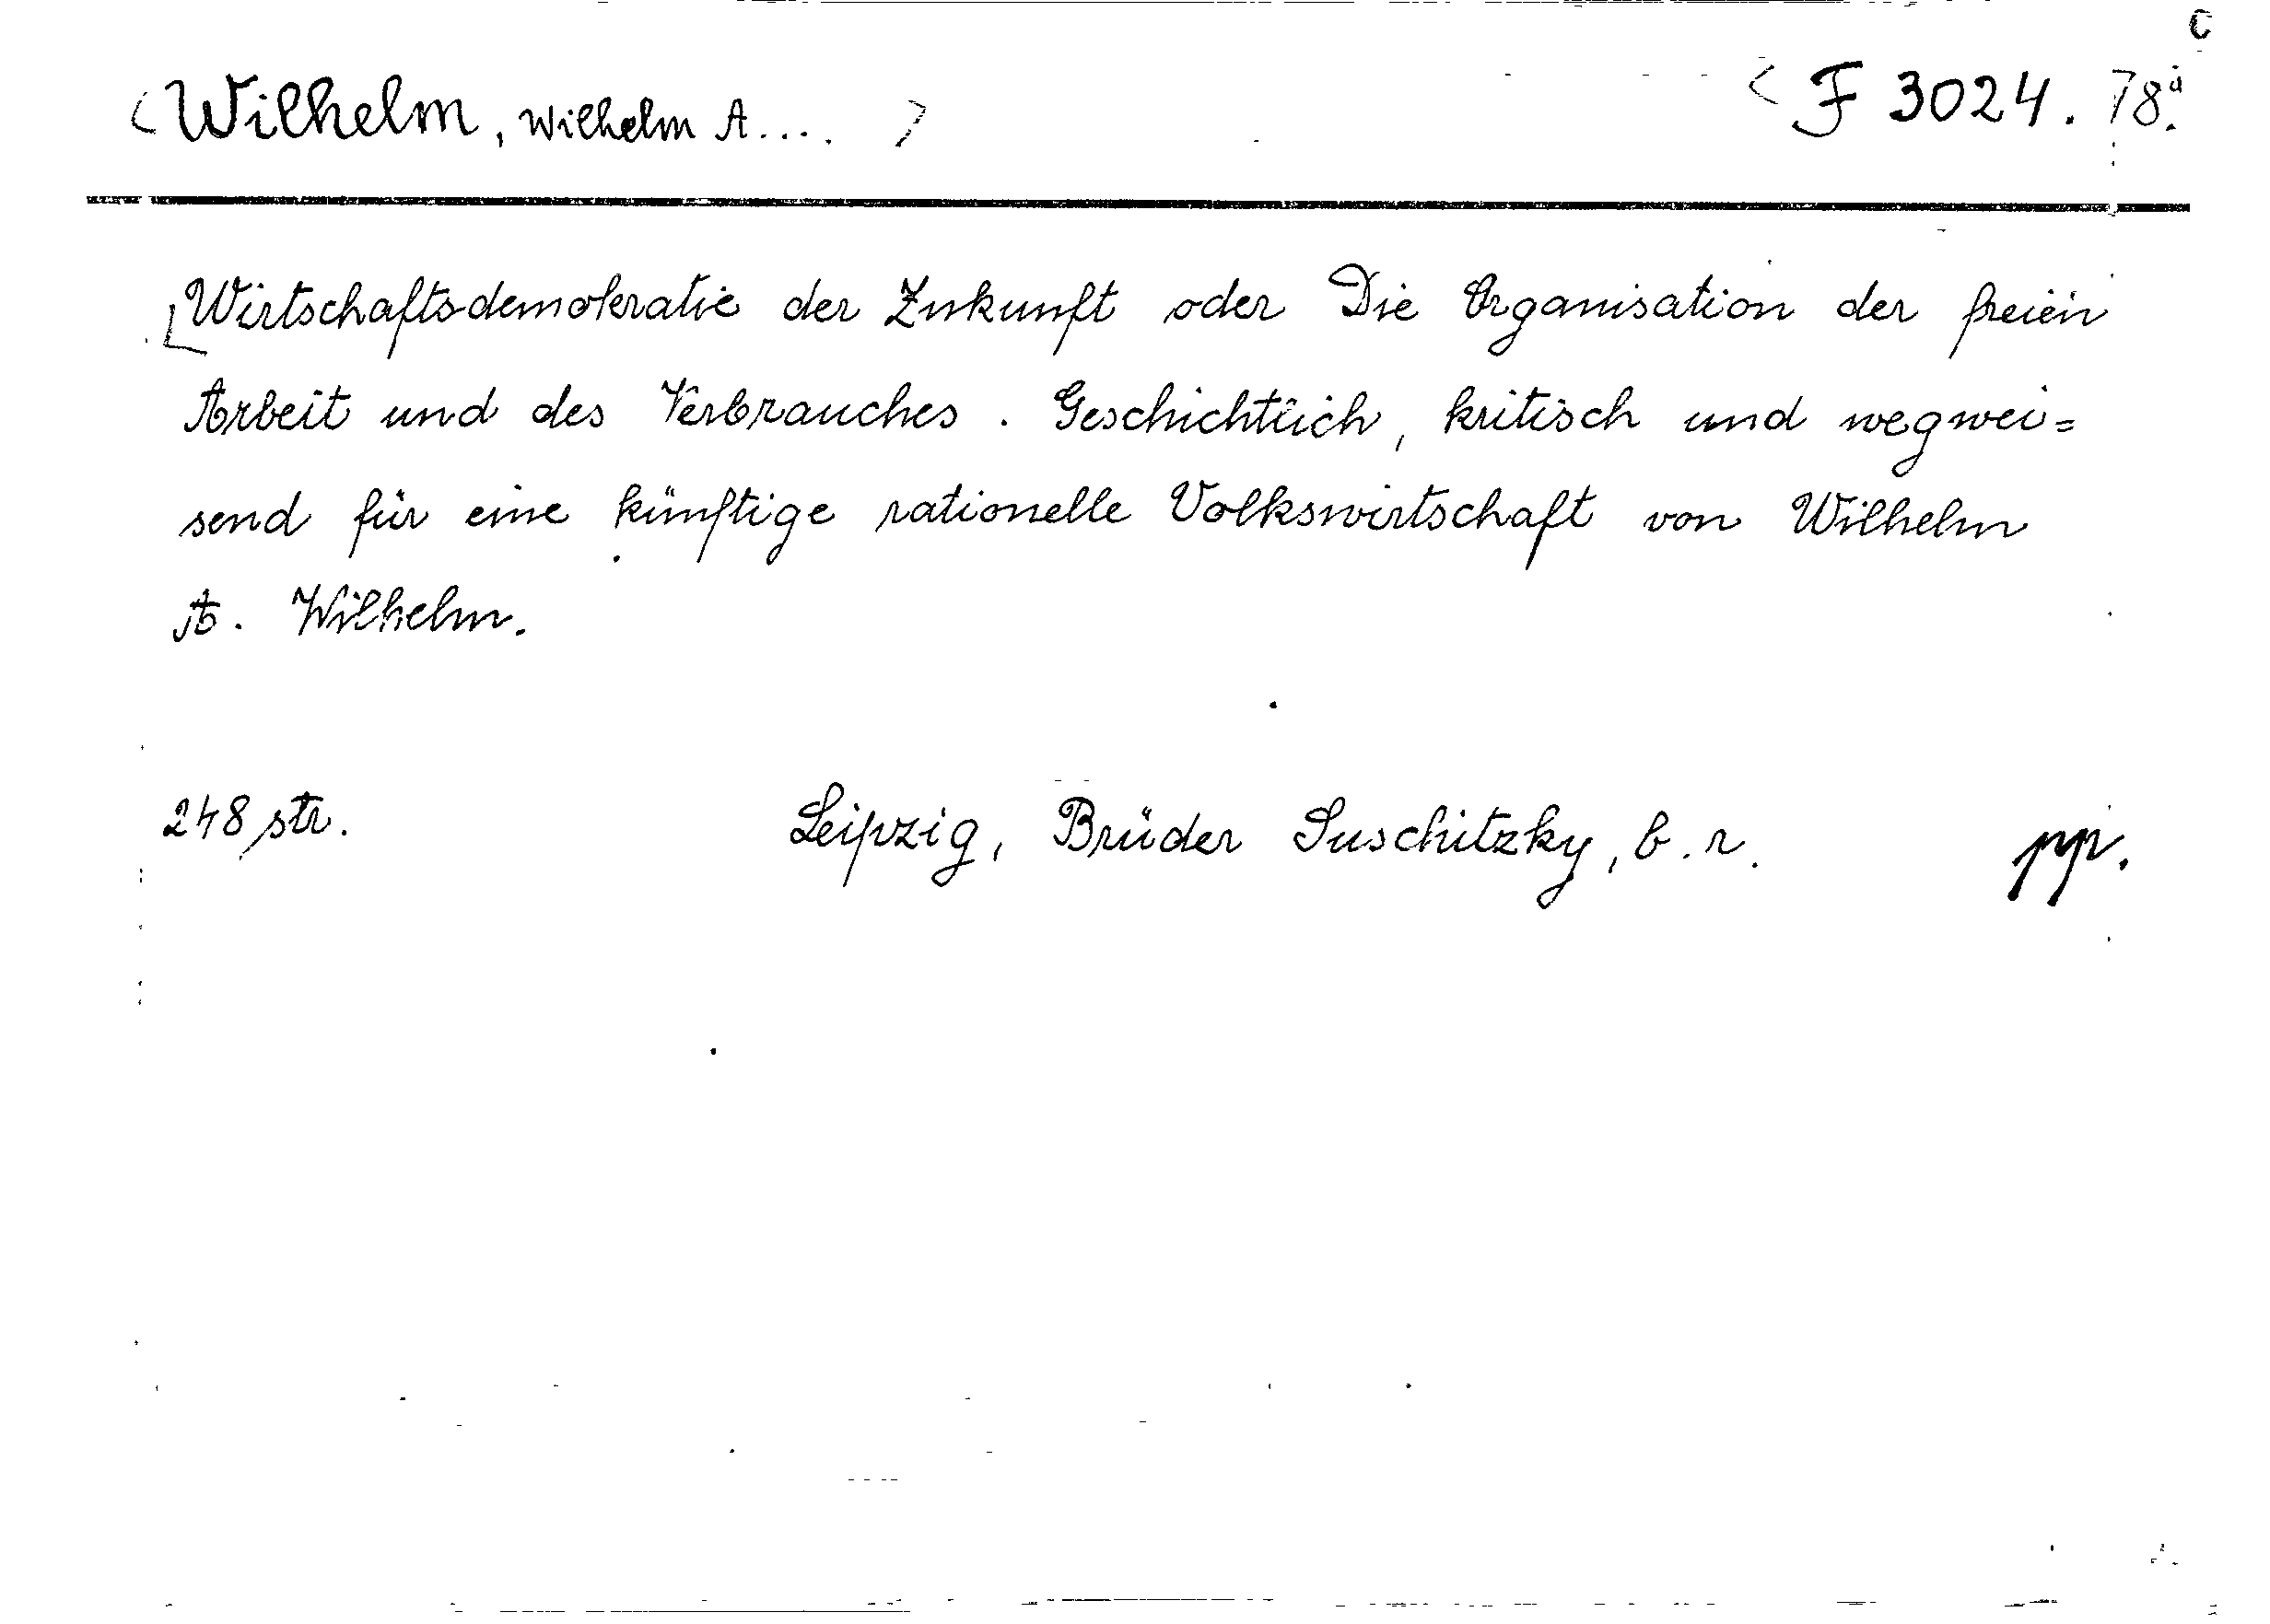 C
Wilhelm, Wilhelm A.... F 3024. 78.
Wirtschaftsdemokratie der Zukunft oder Die Organisation der freien
Arbeit und des Verbrauches. Geschichtlich, kritisch und wegwei=
send für eine künftige rationelle Volkswirtschaft von Wilhelm
A. Wilhelm.
248 str. Leipzig, Brüder Suschitzky, b. r. pp.